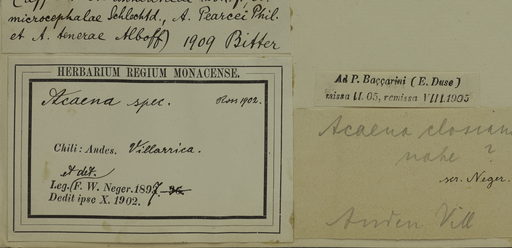 microcephalae Schlechtd., A. Pearcei Phil.
et A. tenerae Alboff) 1909 Bitter
HERBARIUM REGIUM MONACENSE.
Acaena spec. Ross 1902.
Chili: Andes. Villarrica.
et det.
Leg. (F. W. Neger. 1897. 96
Dedit ipse X. 1902.
Ad P. Baccarini (E. Duse)
missa II. 05, remissa VIII.1905
Acaena closiana
nahe ?
scr. Neger.
Anden Vill